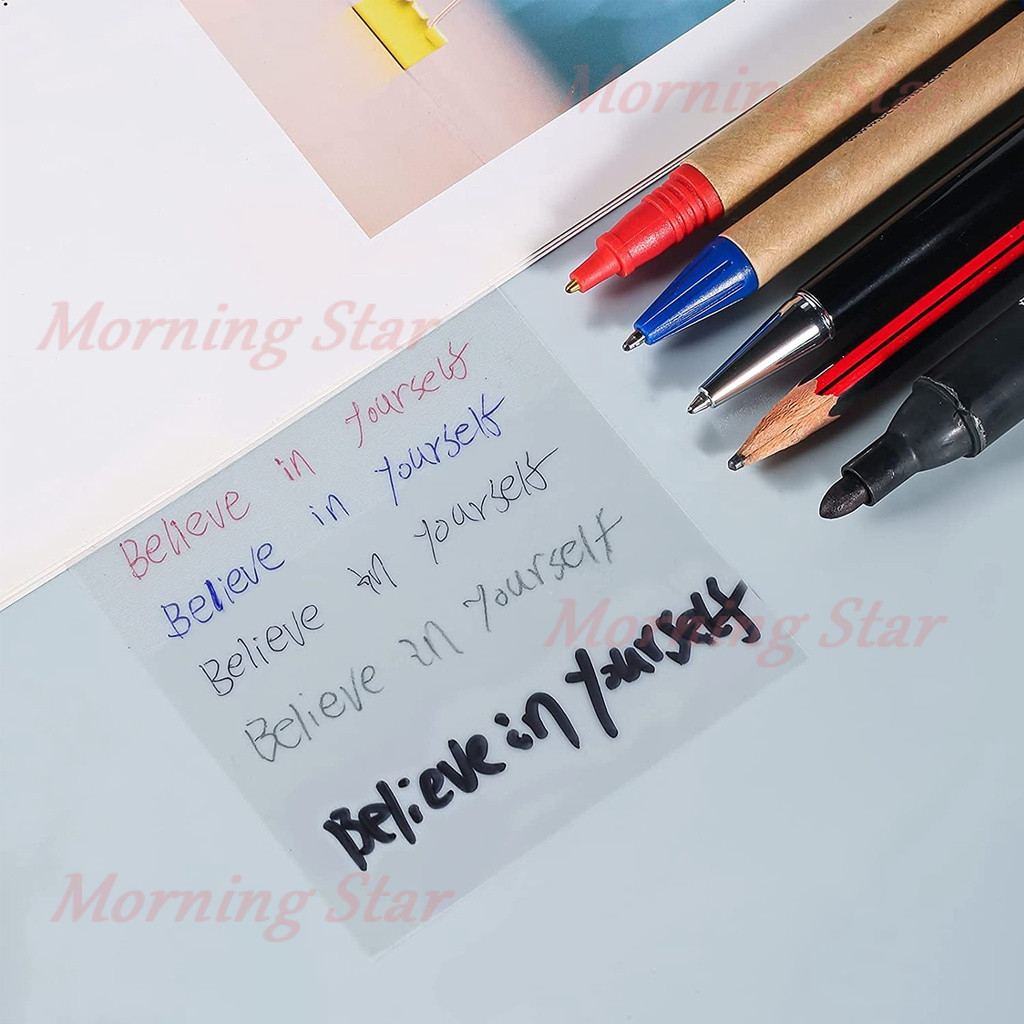 Morning Star
Morning Star
Believe in yourself
Believe in yourself
Believe in yourself
Believe in yourself
Believe in yourself
Morning Star
Morning Star